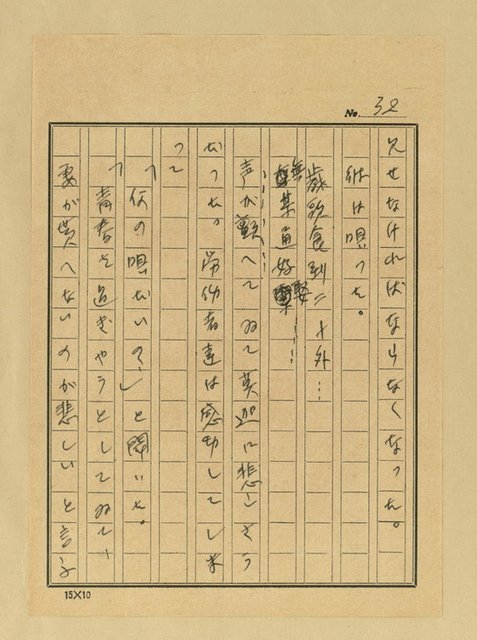 No. 32
見せなければならなくなった。
彼は唄った。
歳飲食到二十外…
無某通好娶……
声が顫へてゐて莫迦に悲しさう
だった。労働者達は感動してしま
って
「何の唄だいの」と聞いた。
「青春を過ぎやうとしてゐて、
妻が貰へないのが悲しいと言ふ
15×10